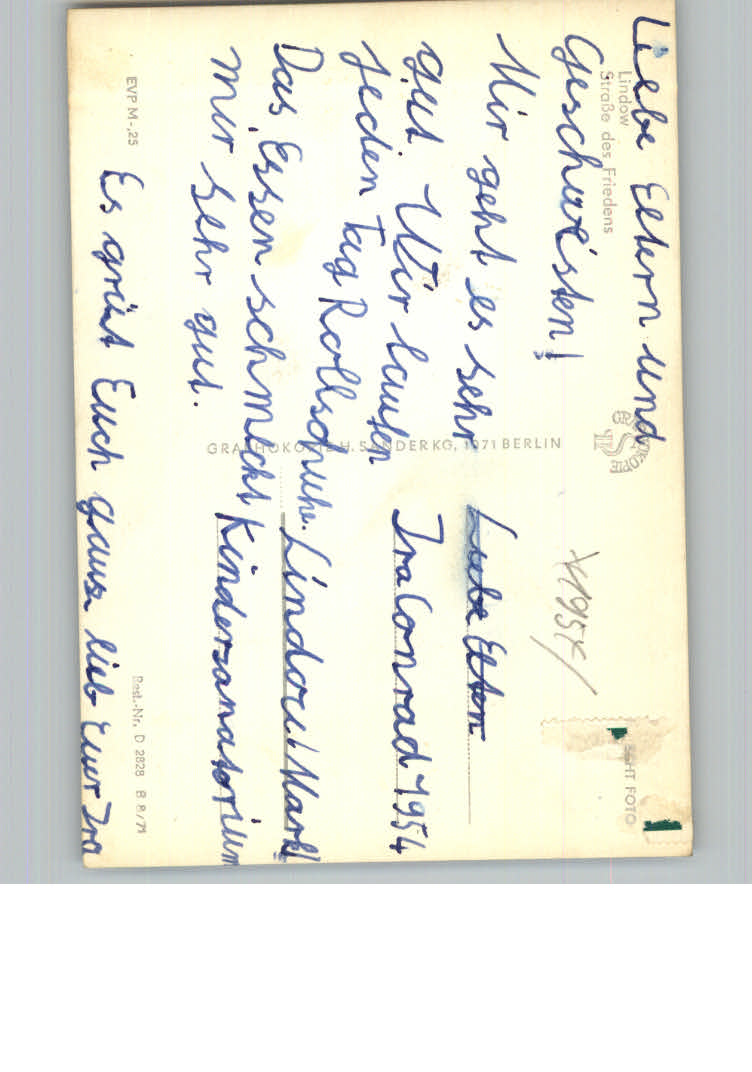 Lindow
Straße des Friedens
Liebe Eltern und
Geschwisten!
Mir geht es sehr
gut. Wir laufen
jeden Tag Rollschuhe.
Das Essen schmeckt
mir sehr gut.
Es grüst Euch ganz lieb Eure Ira
EVP M -,25
GRAPHOKOPIE H. SANDER KG, 1071 BERLIN
GRAPHOKOPIE
HS
1954/
Liebe Eltern
Ira Conrad 1954
Lindow/Mark
Kindersanatorium
ECHT FOTO
Best.-Nr. D 2828 B 8/71